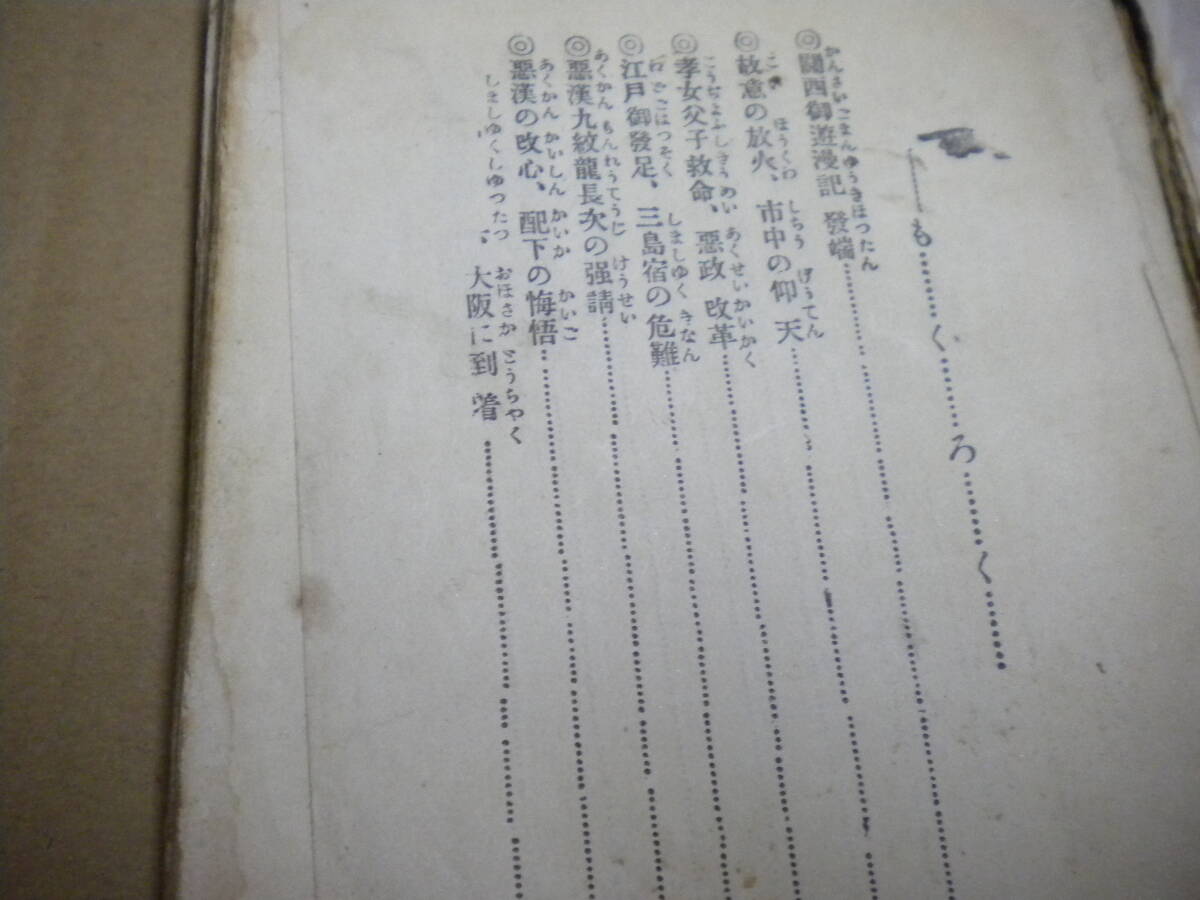 もくろく
◎關西御遊漫記 發端
◎故意の放火、市中の仰天
◎孝女父子救命、惡政改革
◎江戸御發足、三島宿の危難
◎惡漢九紋龍長次の强請
◎惡漢の改心、配下の悔悟
、大阪に到着